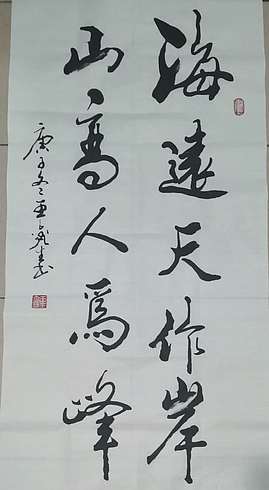 海遠天作岸
山高人爲峰
庚子冬亚